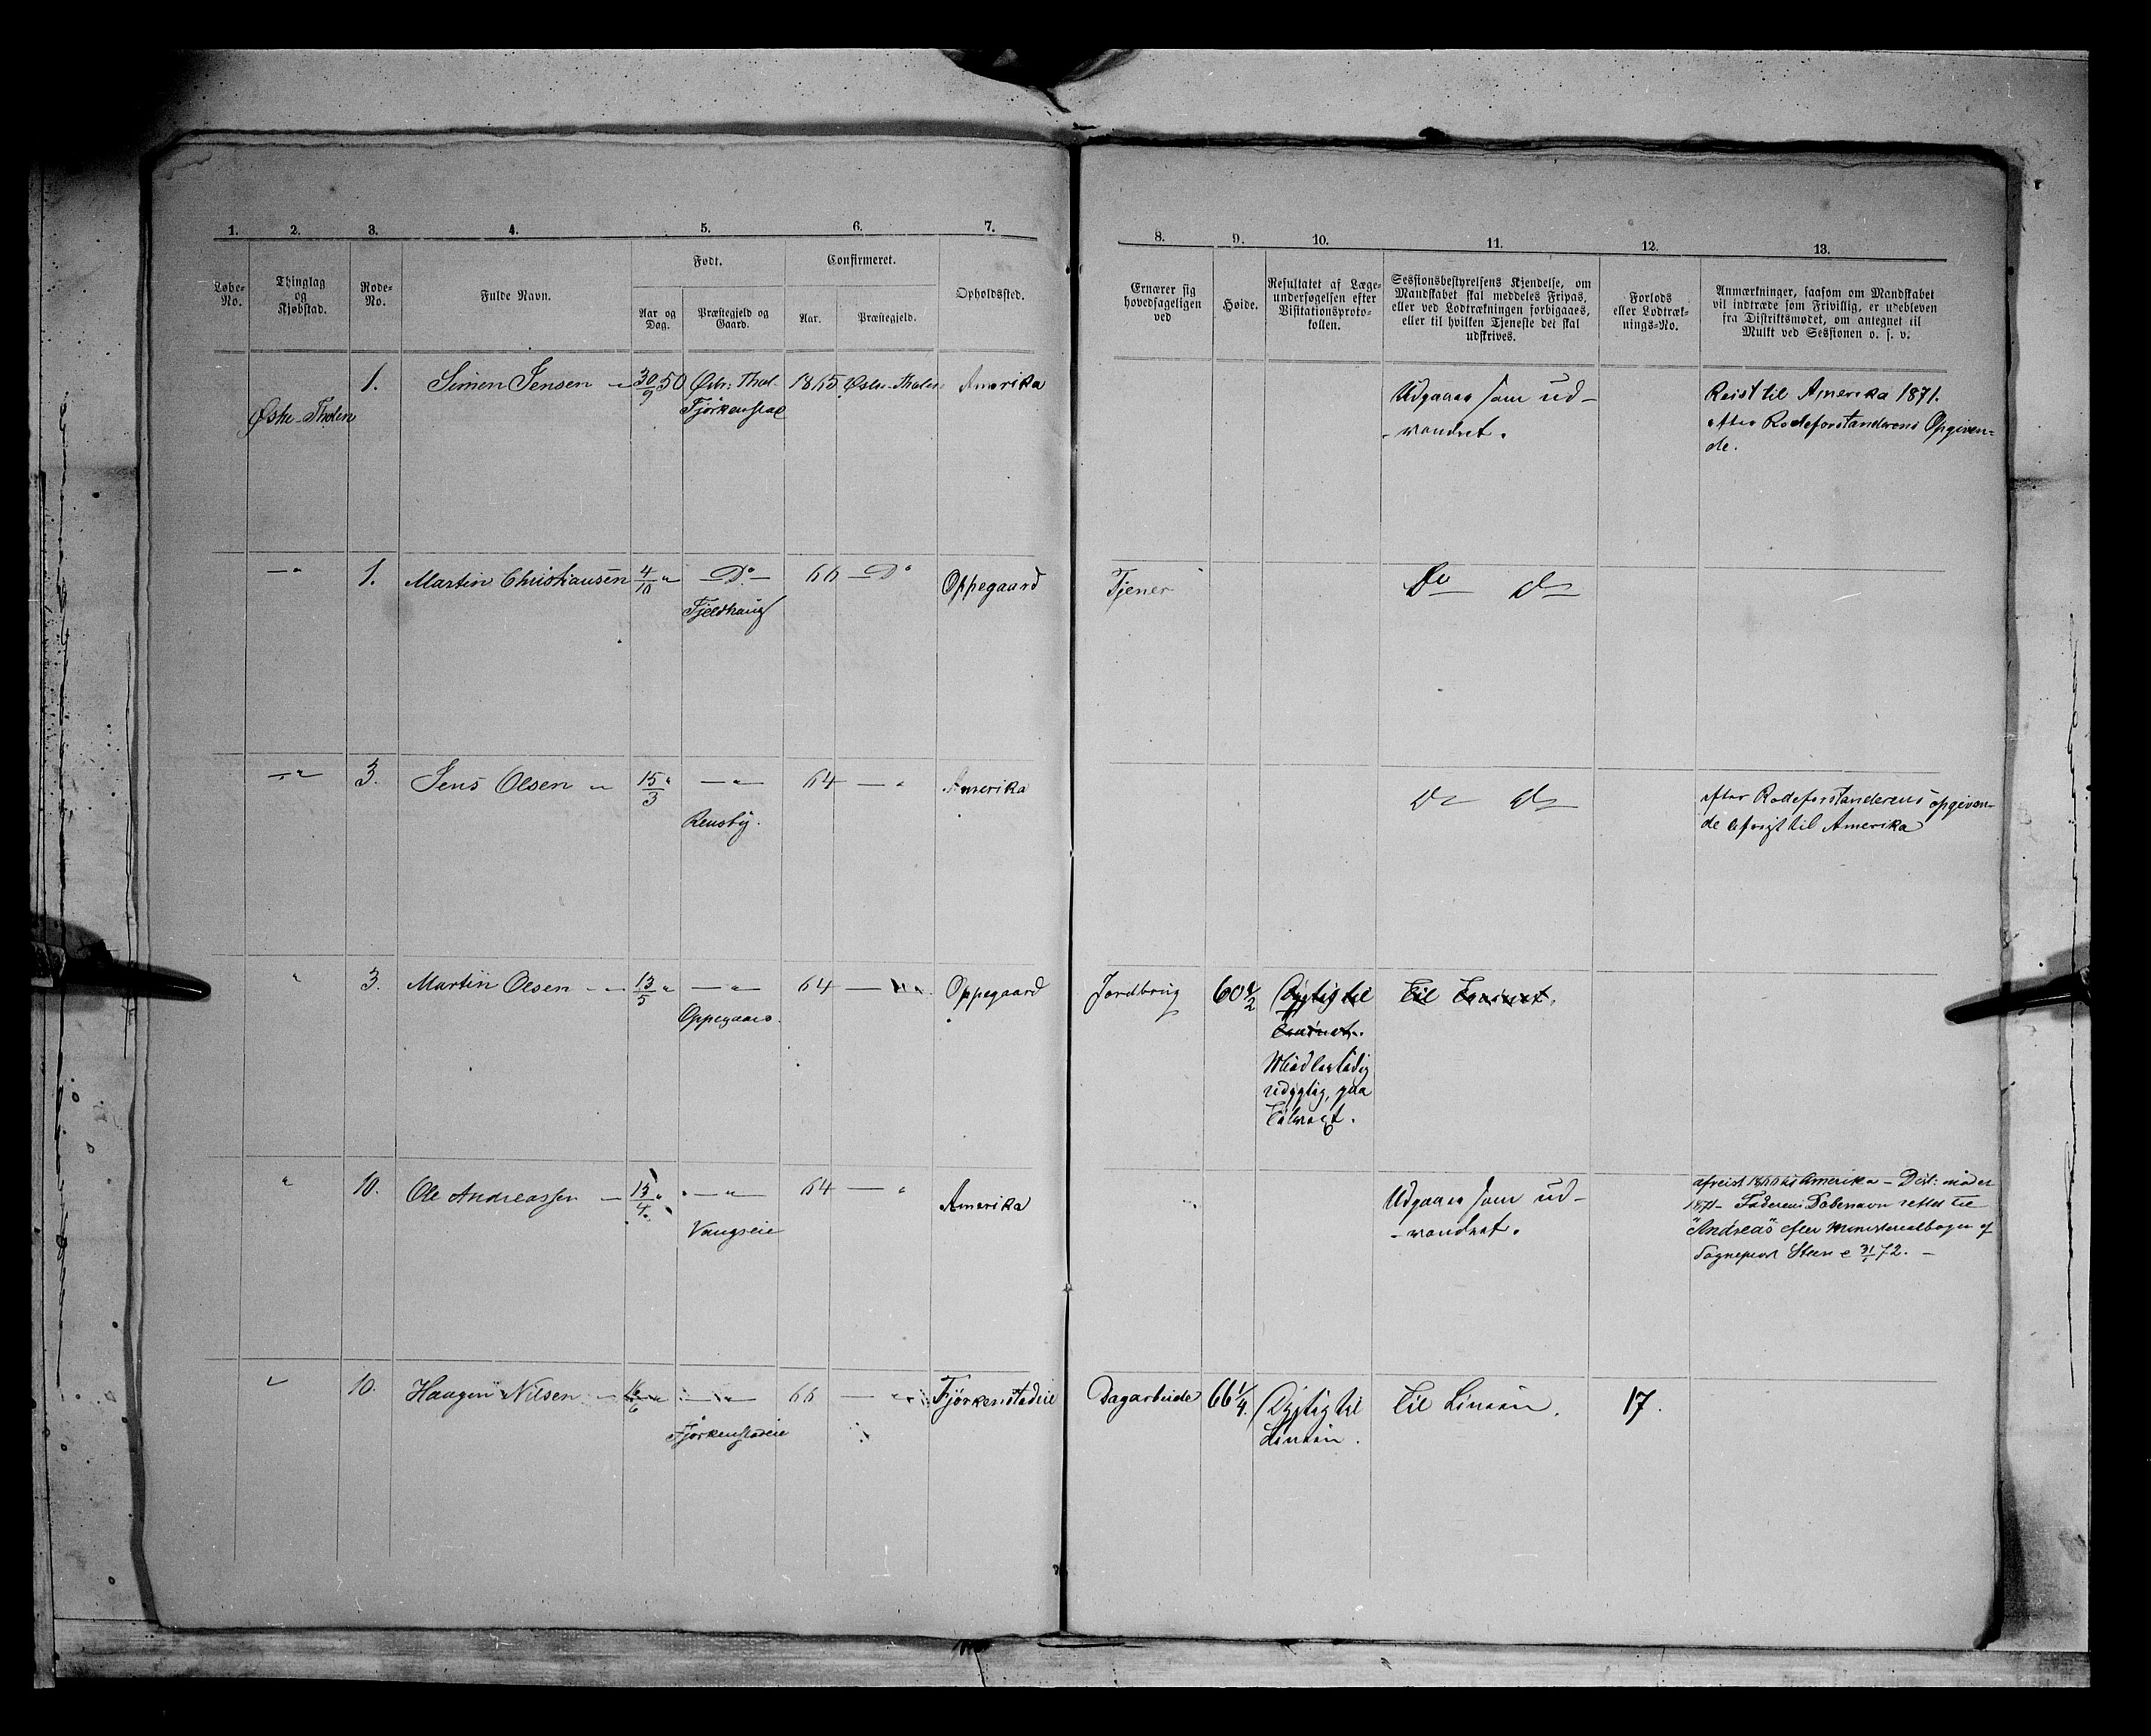 1. 2. 3. 4. 5. 6. 7.
Løbe-
No.
Thinglag
og
Kjøbstad.
Rode-
No.
Fulde Navn.
Født.
Aar og
Dag.
Præstegjeld og
Gaard.
Confirmeret.
Aar.
Præstegjeld.
Opholdssted.
8. 9. 10. 11. 12. 13.
Ernærer sig
hovedsageligen
ved
Høide.
Resultatet af Læge-
undersøgelsen efter
Visitationsproto-
kollen.
Sessionsbestyrelsens Kjendelse, om
Mandskabet skal meddeles Fripas,
eller ved Lodtrækningen forbigaaes,
eller til hvilken Tjeneste det skal
udskrives.
Forlods
eller Lodtræk-
nings-No.
Anmærkninger, saasom om Mandskabet
vil indtræde som Frivillig, er udebleven
fra Distriktsmødet, om antegnet til
Mulkt ved Sessionen o. s. v.
Østre-Tholen
1. Simen Jensen 30/9 50 Østr: Thol- 1865 Østre-Tholen Amerika
Udgaaer som ud-
-vandret.
Reist til Amerika 1871.
efter Rodeforstanderens Opgiven-
de.
— " 1. Martin Christiansen 4/10 " — Do — 66 — Do Oppegaard
Fjeldhaug
Tjener
Do Do
— " 3. Jens Olsen " 15/3 " — " — 64 — " Amerika
Rensby.
Do Do
efter Rodeforstanderens opgiven-
de afreist til Amerika
" 3. Martin Olsen — 13/5 " — " — 64 — " Oppegaard
Oppegaard.
Jordbrug 60 1/2 Dygtig til Til Trainet.
Trainet.
Midlertidig
udygtig, paa
Tilvæxt.
" 10. Ole Andreassen — 13/4 " — " — 64 — " Amerika
Vangseie
Udgaaer som ud-
-vandret.
afreist 1866 til Amerika — Dist: møde
1871 — Faderens Døbenavn rettet til
"Andreas" efter Ministerialbogen af
Sognepræst Steen 72. —
" 10. Haagen Nilsen — 16/6 " — " — 66 — " Fjørkenstadeie
Fjørkenstadeie
Dagarbeide 66 1/4. Dygtig til Til Linien. 17.
Linien.